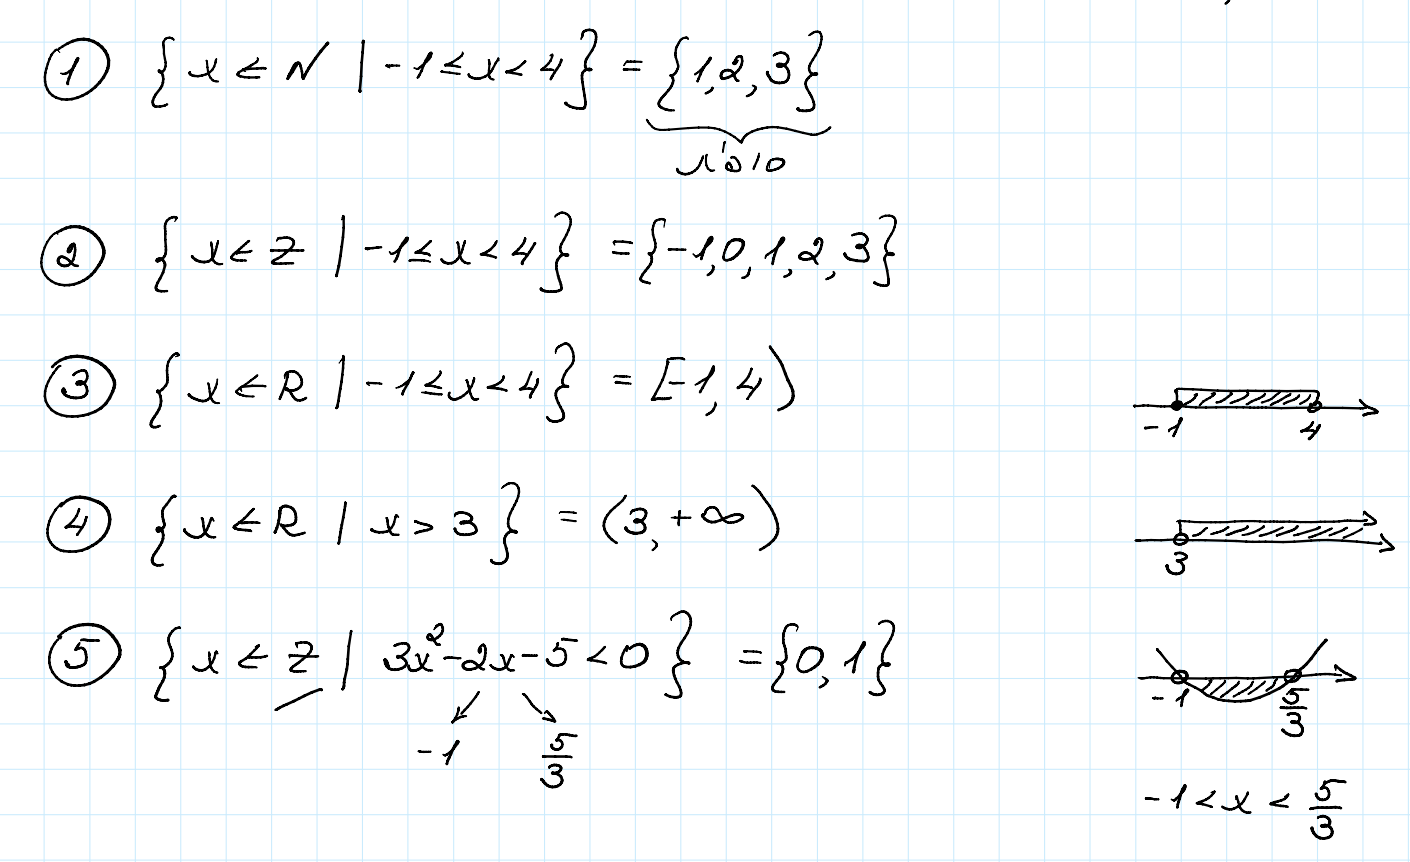 ① {x ∈ N | -1 ≤ x < 4} = {1, 2, 3}
② {x ∈ Z | -1 ≤ x < 4} = {-1, 0, 1, 2, 3}
③ {x ∈ R | -1 ≤ x < 4} = [-1, 4)
-1 4
④ {x ∈ R | x > 3} = (3, +∞)
3
⑤ {x ∈ Z | 3x² - 2x - 5 < 0} = {0, 1}
-1 5/3
-1 5/3
-1 < x < 5/3